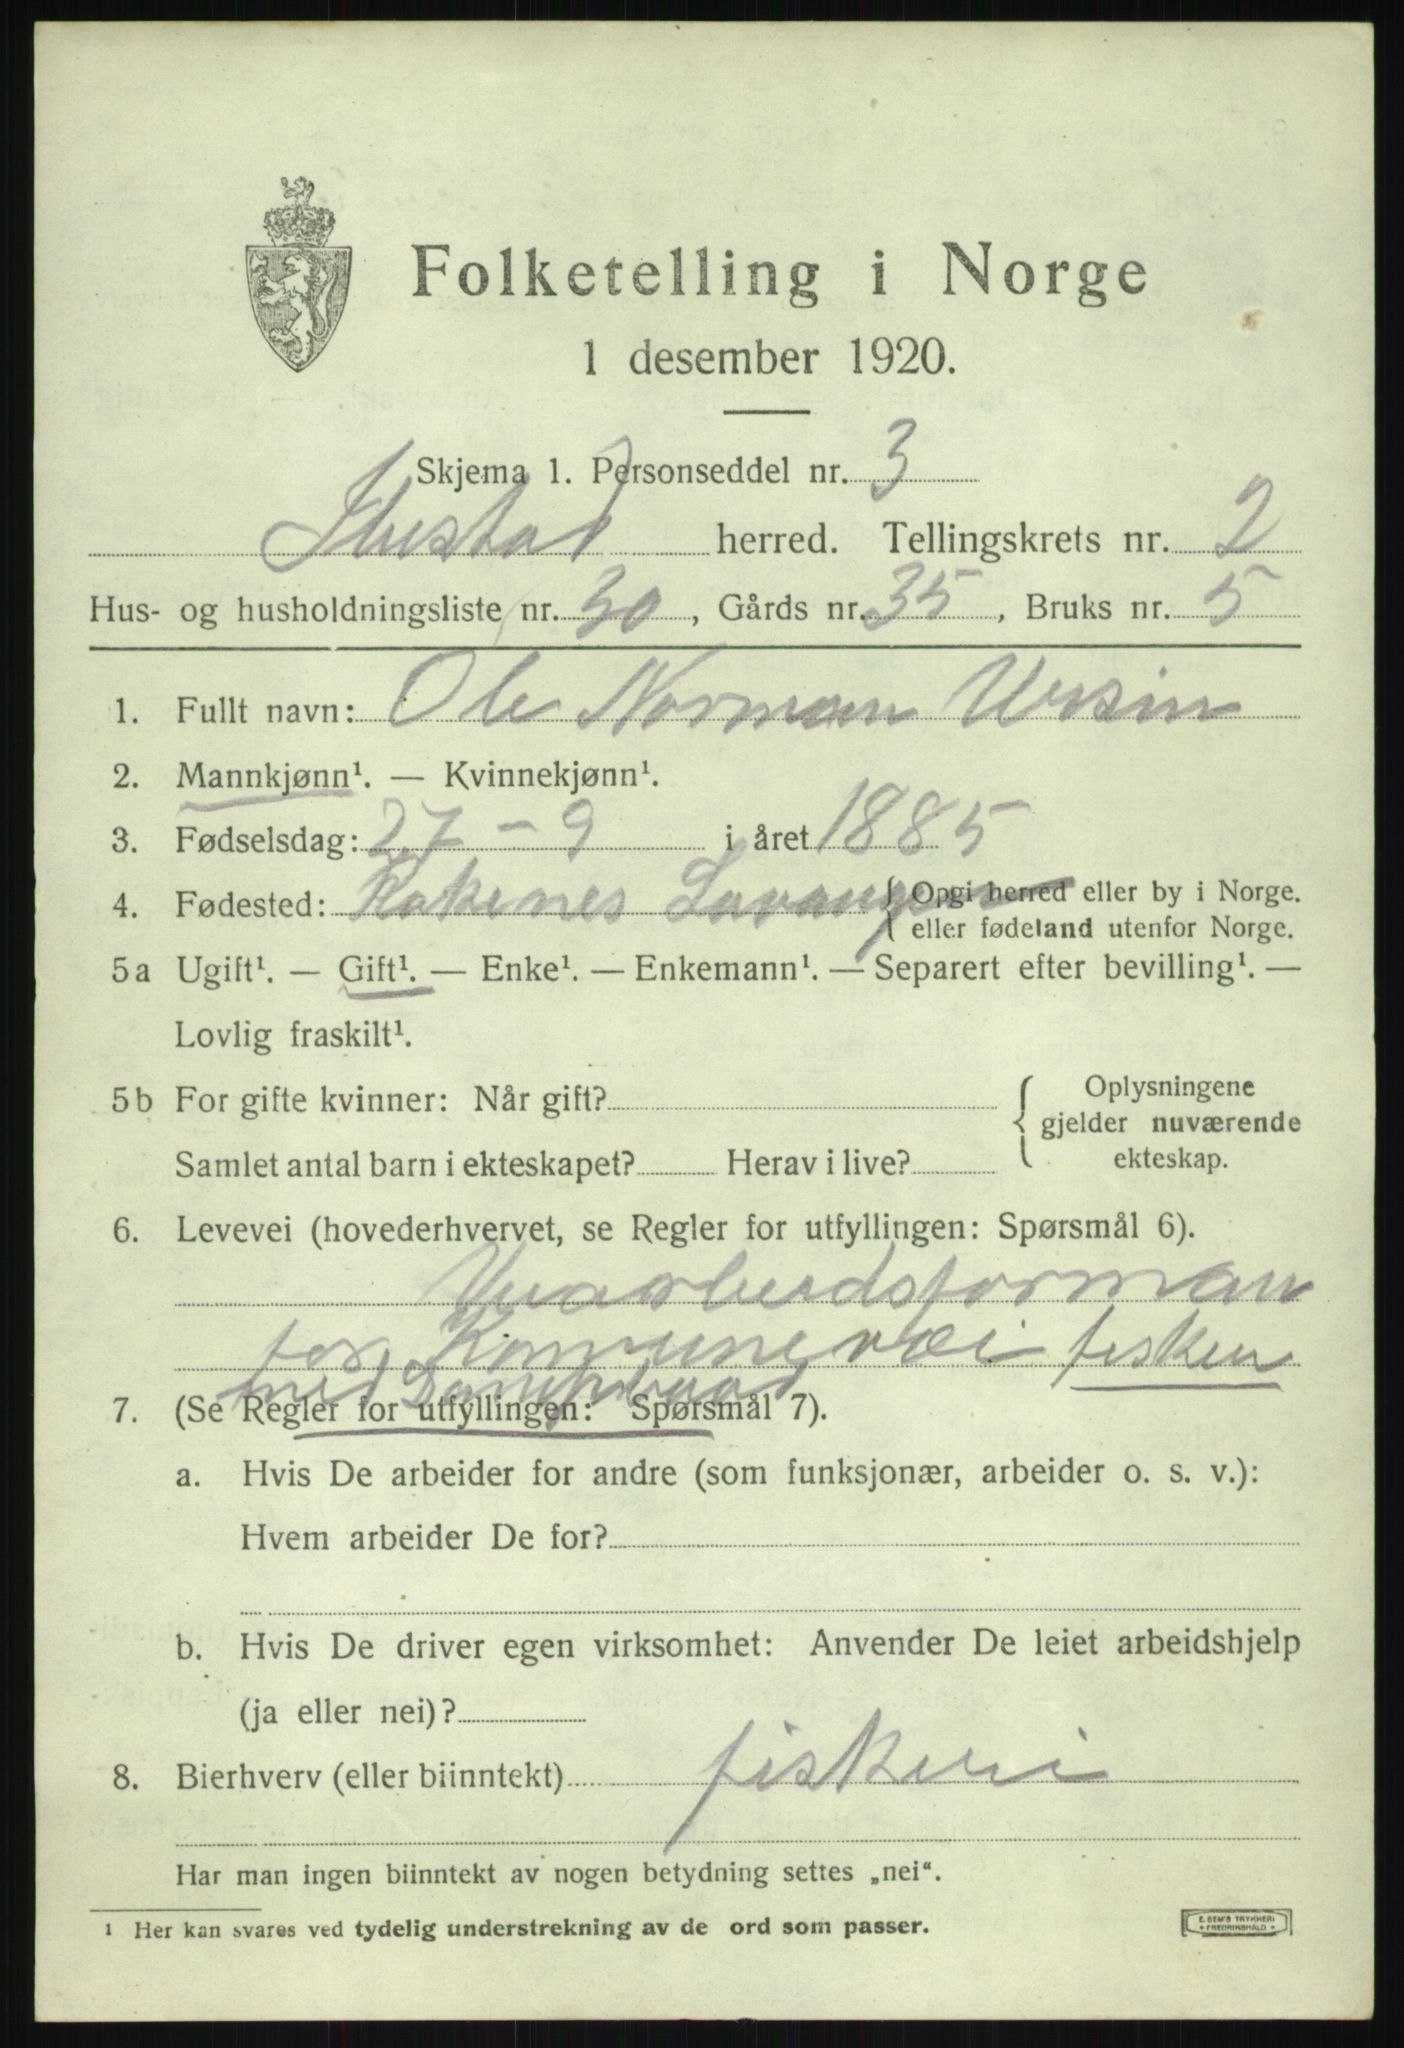 Folketelling i Norge
1 desember 1920.
Skjema 1. Personseddel nr. 3
Ibestad herred. Tellingskrets nr. 2
Hus- og husholdningsliste nr. 30, Gårds nr. 35, Bruks nr. 5
1. Fullt navn: Ole Norman Ursin
2. Mannkjønn¹. — Kvinnekjønn¹.
3. Fødselsdag: 27 - 9 i året 1885
4. Fødested: Røkenes Lavangen { Opgi herred eller by i Norge.
eller fødeland utenfor Norge.
5a Ugift¹. — Gift¹. — Enke¹. — Enkemann¹. — Separert efter bevilling¹. —
Lovlig fraskilt¹.
5b For gifte kvinner: Når gift? { Oplysningene
gjelder nuværende
Samlet antal barn i ekteskapet? Herav i live? ekteskap.
6. Levevei (hovederhvervet, se Regler for utfyllingen: Spørsmål 6).
formann
for Komune vei fisker
med
7. (Se Regler for utfyllingen: Spørsmål 7).
a. Hvis De arbeider for andre (som funksjonær, arbeider o. s. v.):
Hvem arbeider De for?
b. Hvis De driver egen virksomhet: Anvender De leiet arbeidshjelp
(ja eller nei)?
8. Bierhverv (eller biinntekt) fiskeri
Har man ingen biinntekt av nogen betydning settes „nei“.
1 Her kan svares ved tydelig understrekning av de ord som passer.
E. SEM'S TRYKKERI
FREDRIKSHALD